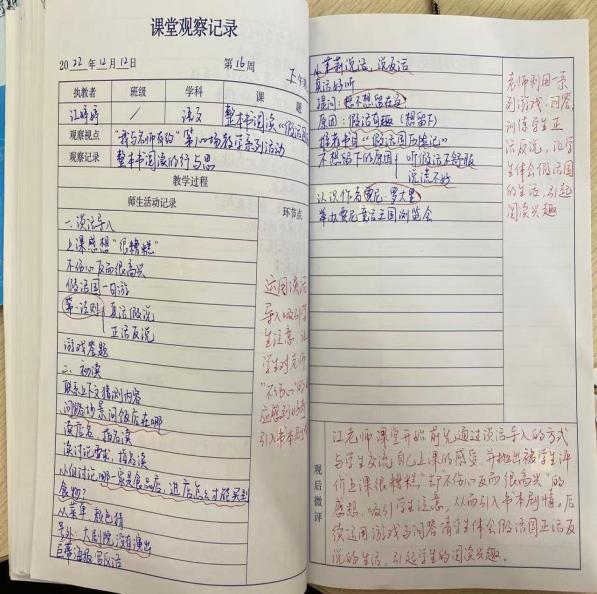 课堂观察记录
2022年12月12日 第16周 下午
执教者 班级 学科 课题
江婷婷 / 语文 整本书阅读《假话国
观察视点 "我与老师有约"第 场教学系列活动
观察记录 整本书阅读的行与思
教学过程
师生活动记录 环节点
一.谈话导入
上课感想"很糟糕"
不伤心反而很高兴
假话国一日游
第一法则 真话假说
正话反说
游戏答题
二.初读
联系上下文猜测内容
问路场景问饭店在哪
读店名 指名读
读讨论要求 指名读
小组讨论哪一家是食品店,进店怎么才能买到
食物?
从菜单 颜色猜
另外:大剧院没有演出
巨幕海报写反话
运用谈话
导入吸引学
生注意,让
学生对老师
"不伤心"的反
应感到好奇
引入书本剧情
小茉莉说话,说反话
真话好听
提问:想不想留在这
原因:假话有趣(想留下)
推荐书目《假话国历险记》
不想留下的原因 听假话不舒服
说谎不好
认识作者贾尼·罗大里
举办贾尼童话王国浏览会
老师利用一系
列游戏、问答
训练学生正
话反说,让学
生体会假话国
的生活,引起
阅读兴趣
观后微评
江老师课堂开始前先通过谈话导入的方式
与学生交流自己上课的感受,并抛出被学生评
价上课很糟糕"却不伤心反而很高兴"的
感想,吸引学生注意,从而引入书本剧情。后
续运用游戏与问答请学生体会假话国正话反
说的生活,引起学生的阅读兴趣。